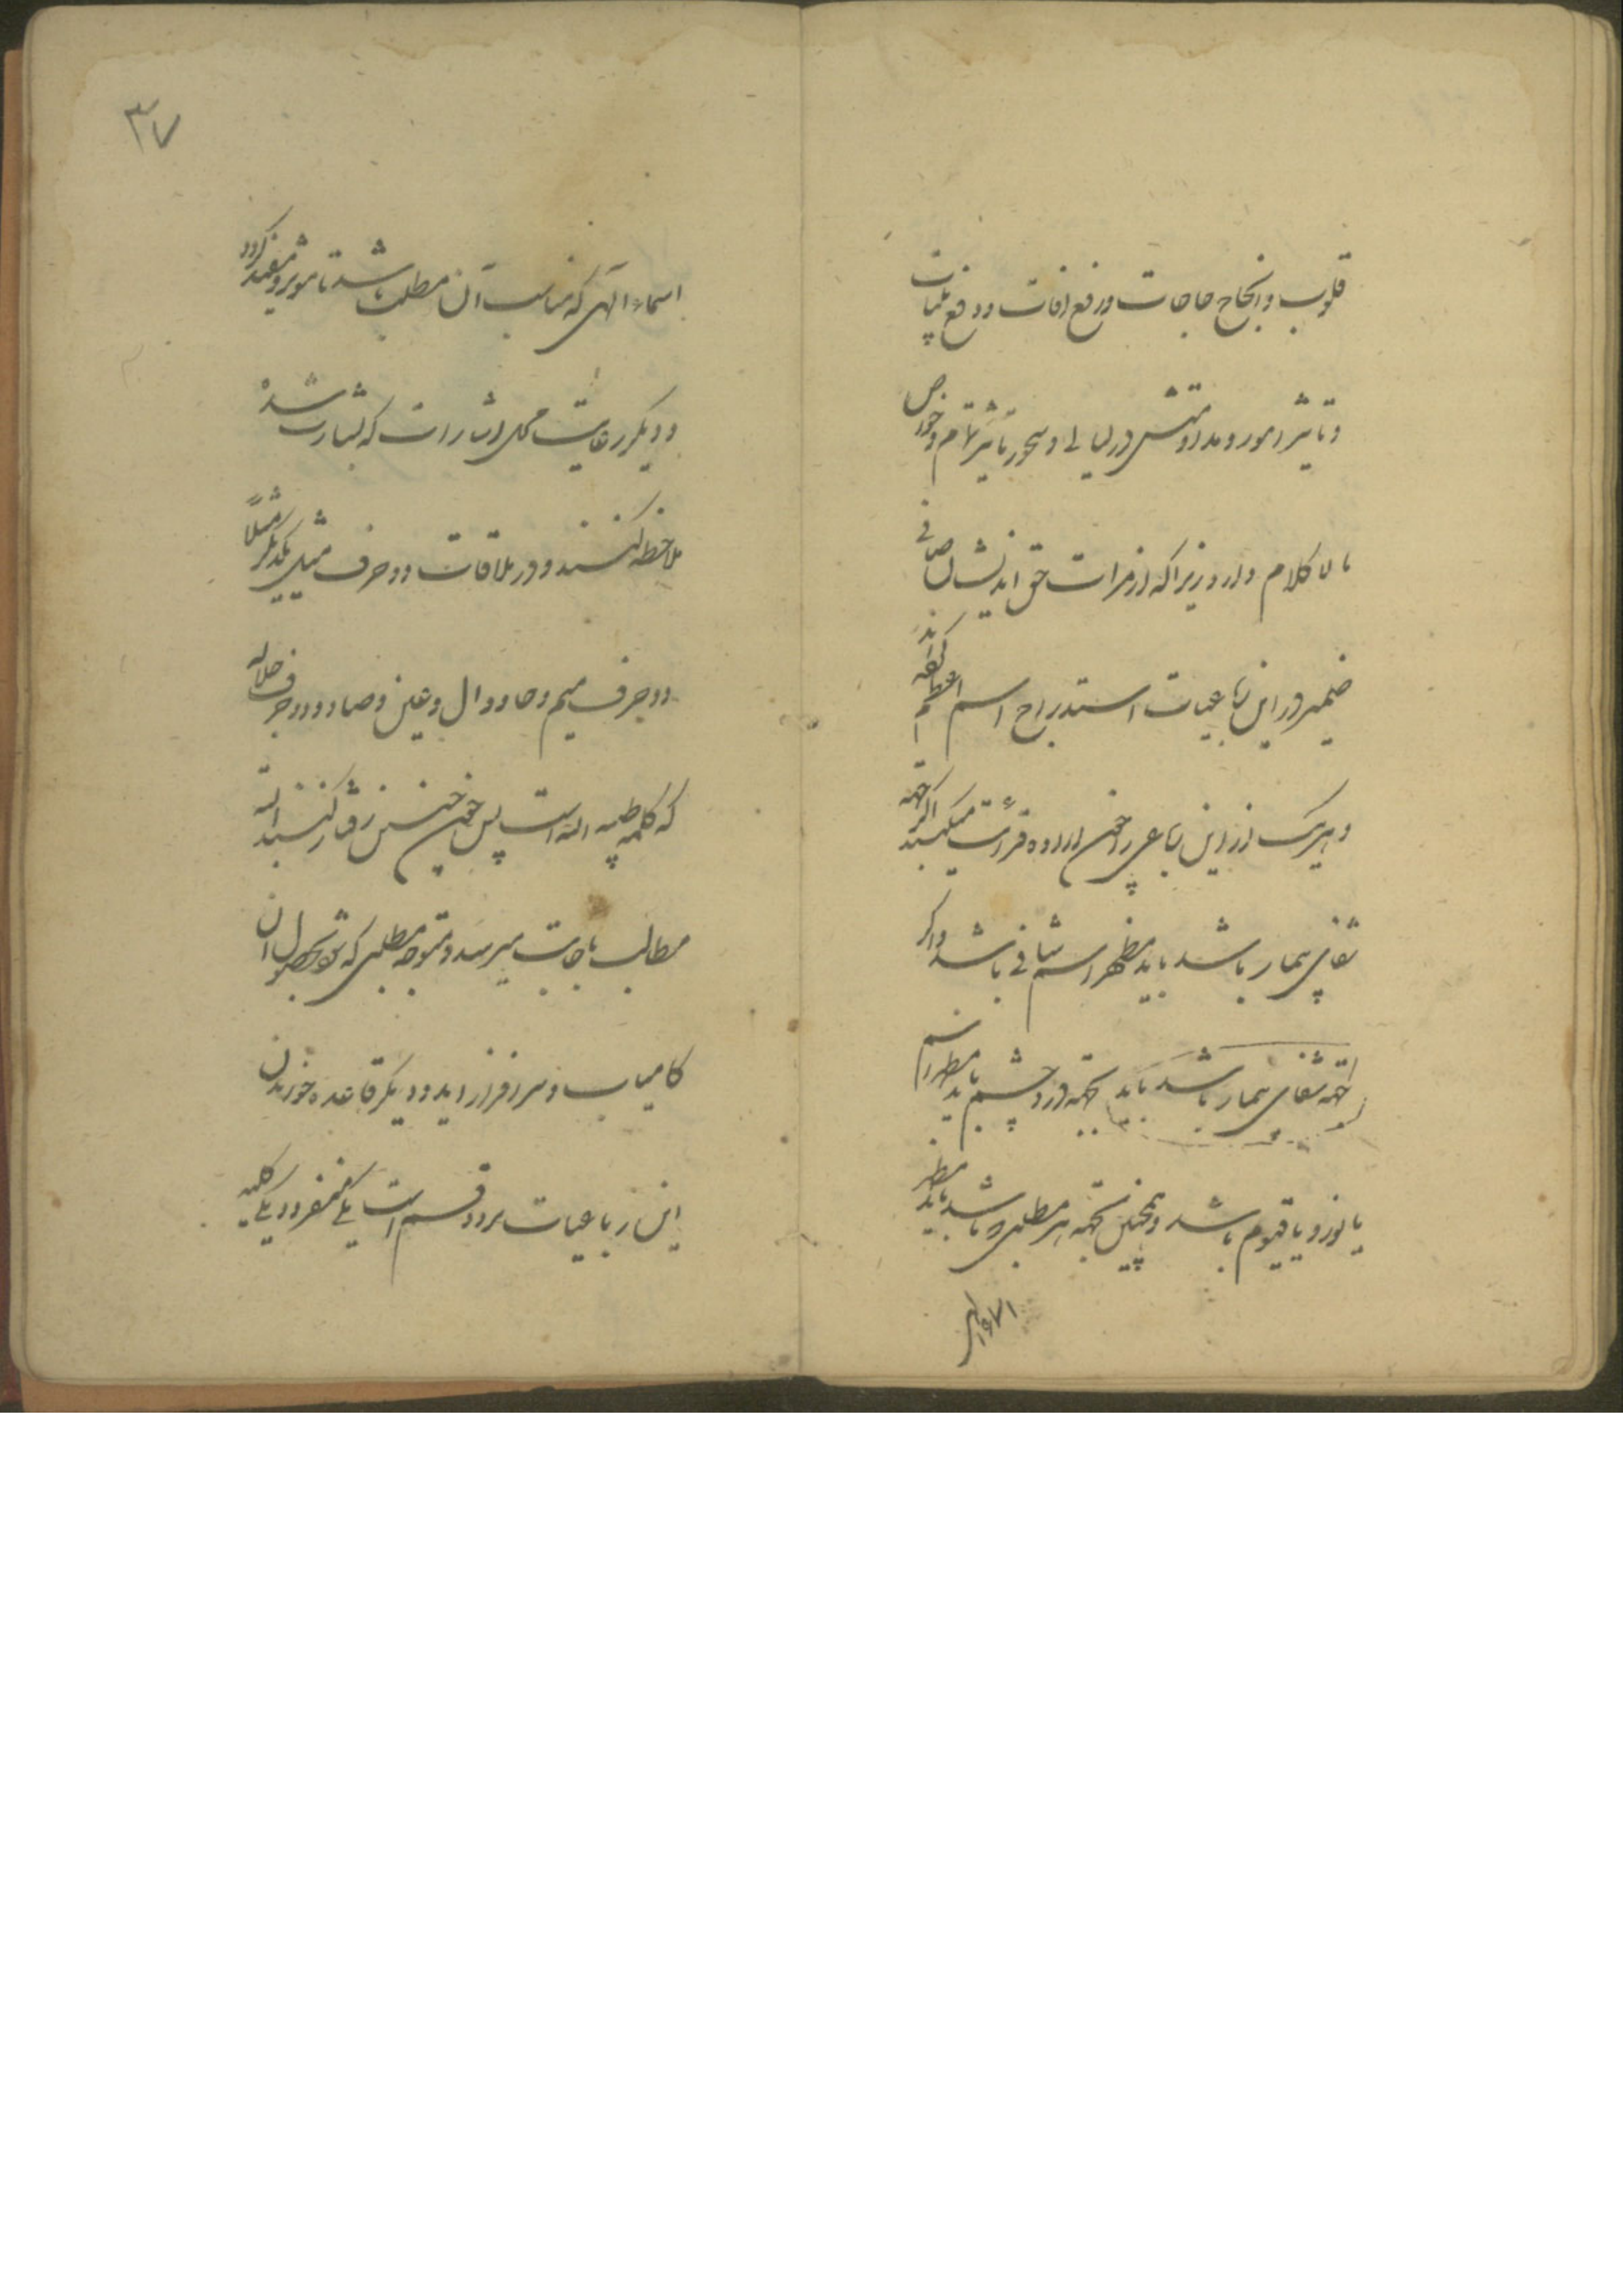 قلوب و انجاح حاجات و رفع افات و دفع بلیات
و تاثیر امور و مداومتش در لیالی و سحور تاثیر تمام و خواص
مالا کلام دارد زیرا که از مرات حق اندیشان صافی
ضمیر در این رباعیات استدراج اسم اعظم کرده‌اند
و هریک از این رباعی را چون اراده قرائت میکنید اگر جهة
شفای بیمار باشد باید مظهر اسم شافی باشد و اگر
جهة شفای بیمار باشد باید بجهة درد چشم باید مظهر اسم
یا نور و یا قیوم باشد و همچنین بجهة هر مطلبی که باشد باید مظهر
۳۷
اسماء الهی که مناسب آن مطلب باشد تا موثر و مفید گردد
و دیگر رعایت محل اشارات که بشارت شده
ملاحظه کنند و در ملاقات دو حرف مثل یکدیگر مثلا
دو حرف میم و حا و دال و عین و صاد و دو حرف جلاله
که کلمه طیبه الله است پس چون چنین رفتار کنند البته
مطالب باجابت میرسد و متوجه مطلبی که شود بحصول آن
کامیاب و سرافراز اید و دیگر قاعده خواندن
این رباعیات بر دو قسم است یکی منفرد و یکی کلیه